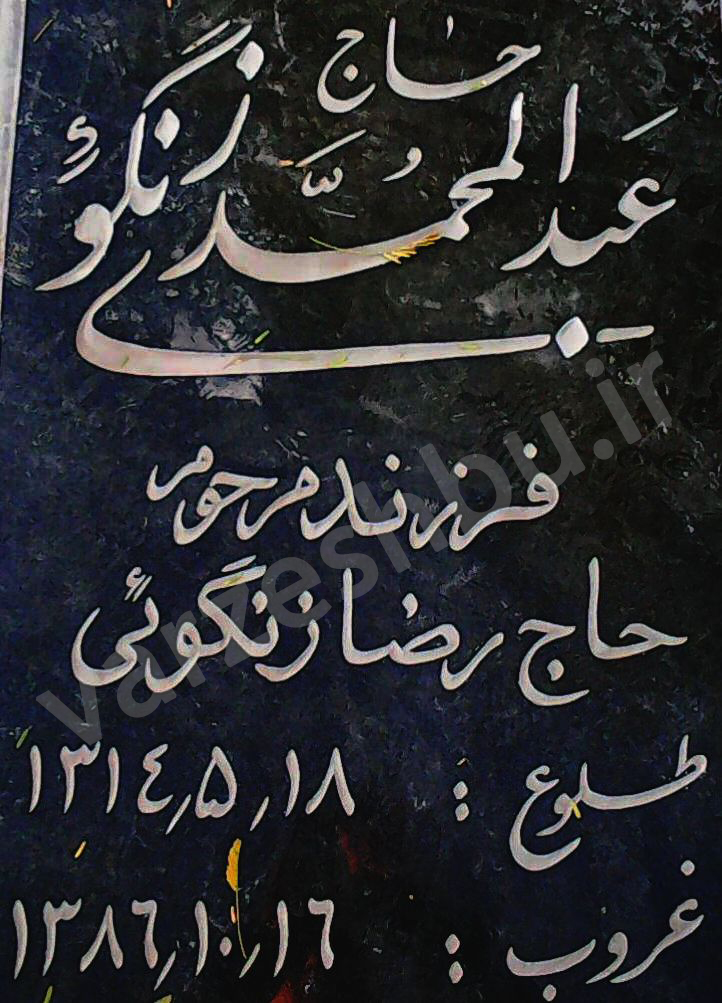 حاج
عبدالمحمّد زنگوئی
فرزند مرحوم
حاج رضا زنگوئی
طلوع : ۱۳۱٤٫۵٫۱۸
غروب : ۱۳۸٦٫۱۰٫۱٦
varzeshbu.ir